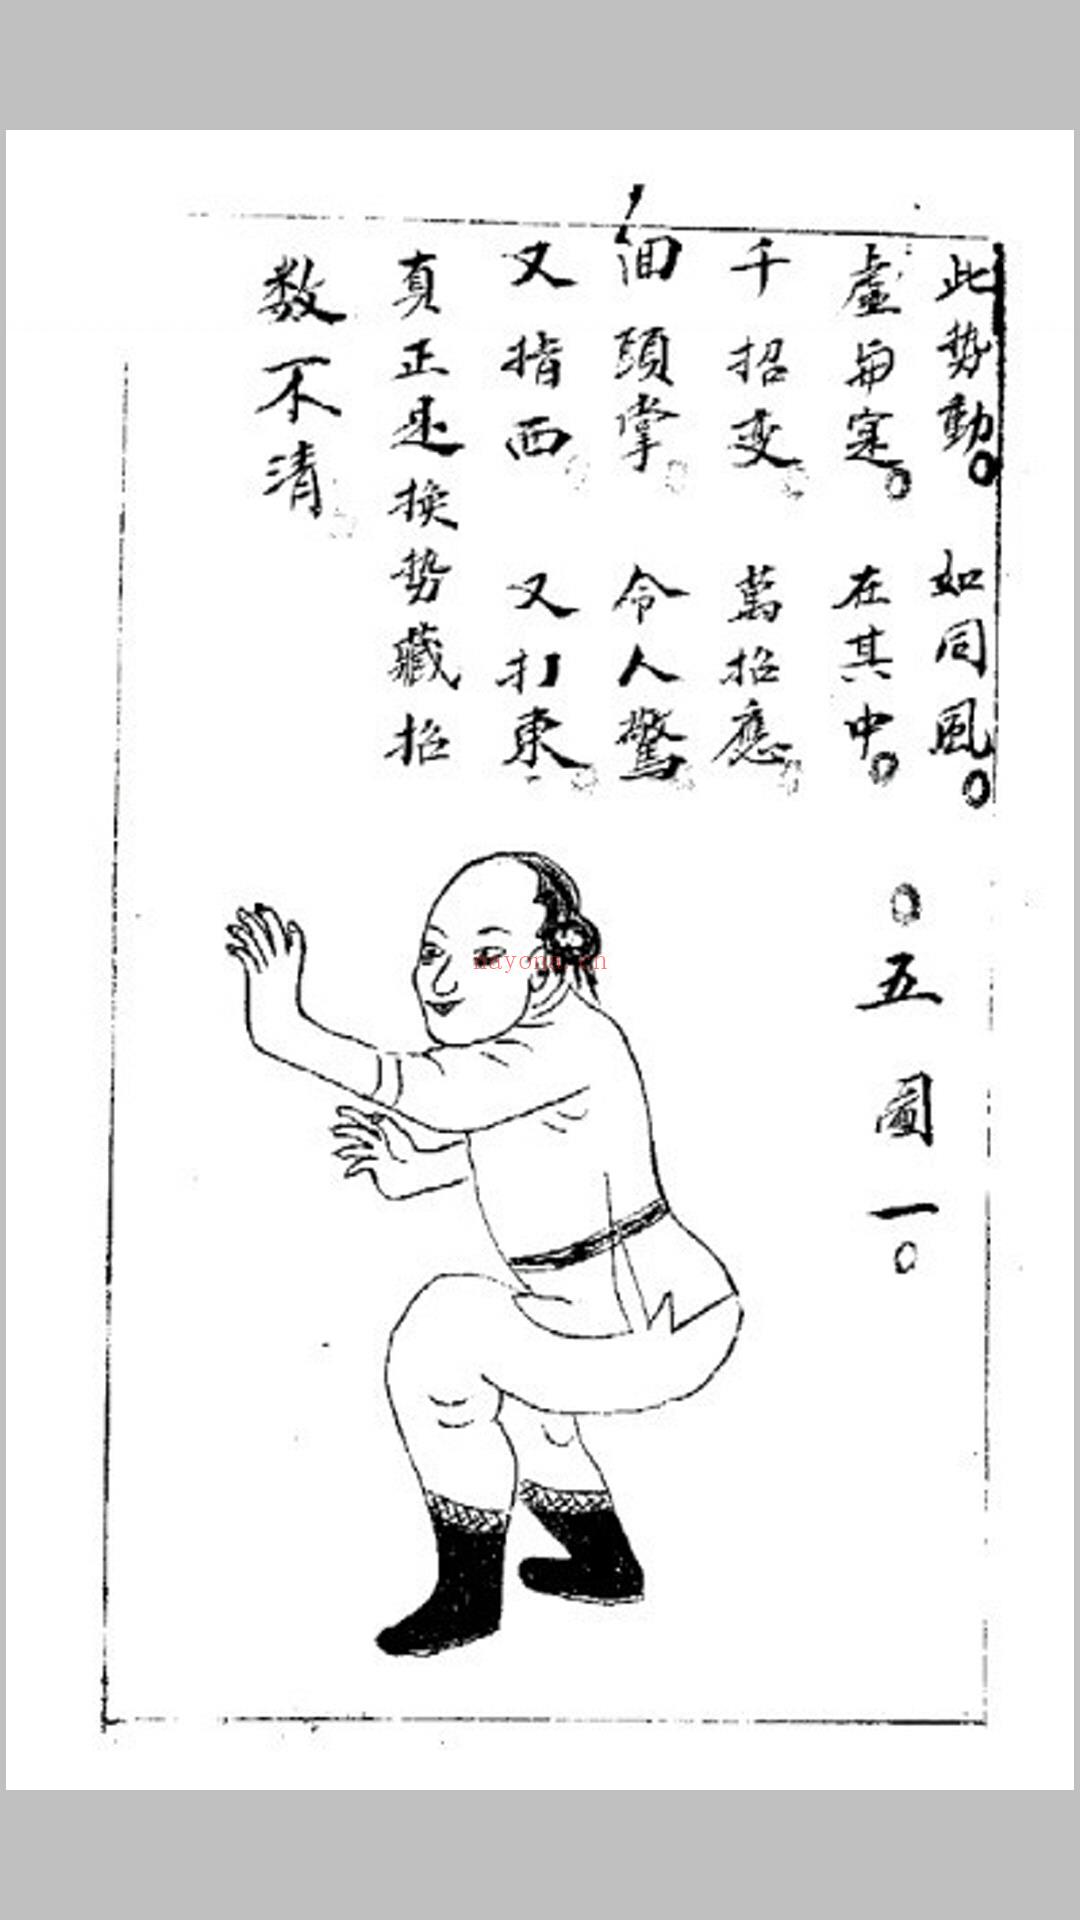 此势動。如同風。
虛与定。在其中。
千招变。萬招應。
回頭掌。令人驚。
又指西。又打東。
真正是换势藏招
数不清。
○五圖一○
nayona.cn